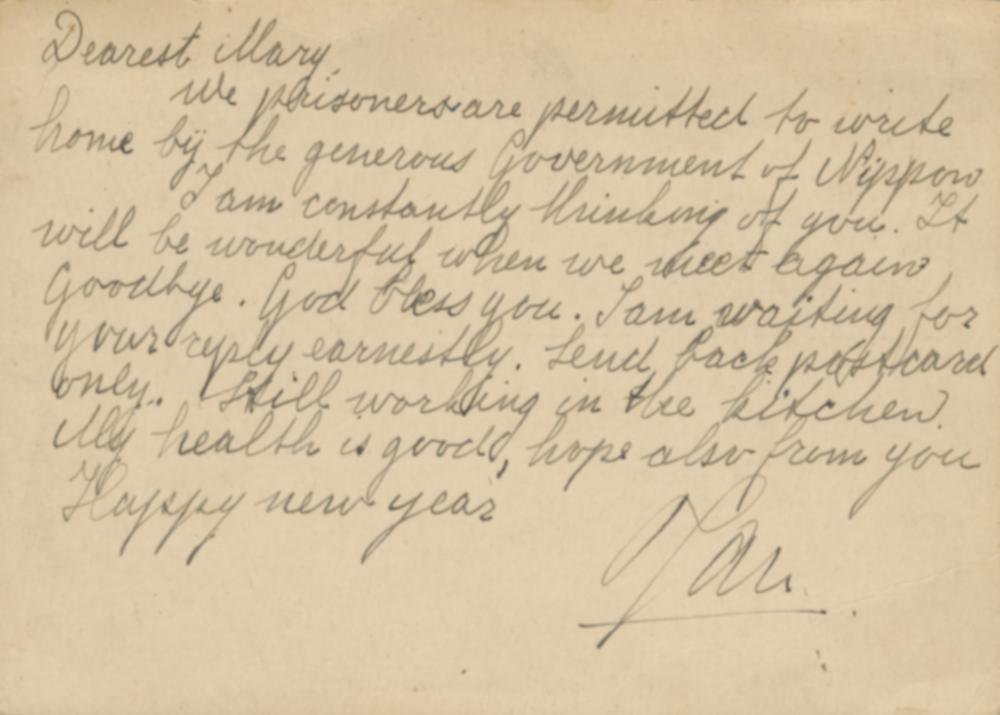 Dearest Mary,
We prisoners are permitted to write
home by the generous Government of Nippon
I am constantly thinking of you. It
will be wonderful when we meet again,
Goodbye. God bless you. I am waiting for
your reply earnestly. Send back postcard
only. Still working in the kitchen.
My health is good, hope also from you
Happy new year
Jan.